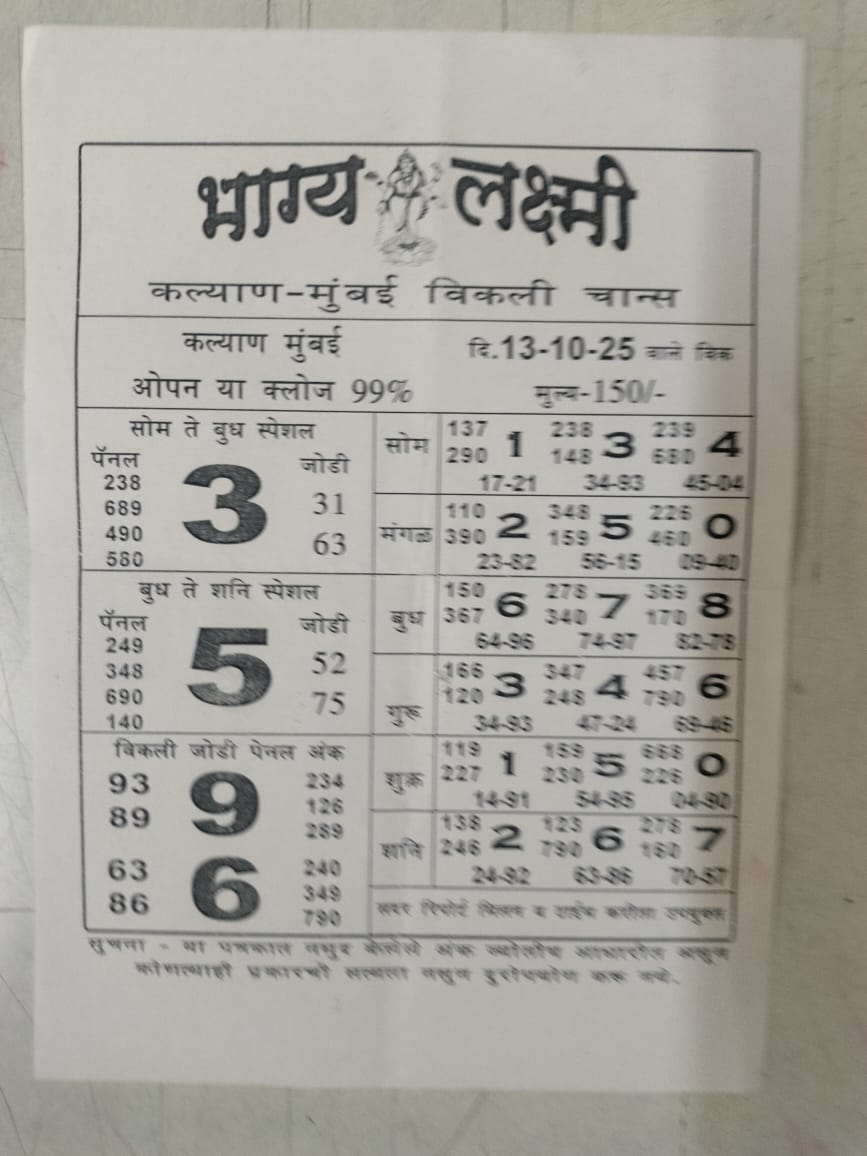 भाग्य लक्ष्मी
कल्याण-मुंबई विकली चान्स
कल्याण मुंबई
दि.13-10-25 वाले विक
ओपन या क्लोज 99%
मुल्य-150/-
सोम ते बुध स्पेशल
पॅनल
238
689
490
580
3
जोडी
31
63
बुध ते शनि स्पेशल
पॅनल
249
348
690
140
5
जोडी
52
75
विकली जोडी पेनल अंक
93
89
9
234
126
289
63
86
6
240
349
790
सोम
137 1 238 3 239 4
290 148 680
17-21 34-93 45-04
मंगळ
110 2 348 5 226 0
390 159 460
23-82 56-15 09-40
बुध
150 6 278 7 369 8
367 340 170
64-96 74-97 82-78
गुरु
166 3 347 4 457 6
120 248 790
34-93 47-24 69-46
शुक्र
119 1 159 5 668 0
227 230 226
14-91 54-95 04-90
शनि
138 2 123 6 278 7
246 790 160
24-92 63-86 70-57
सदर रिपोर्ट व करीता उपयुक्त
सुचना - या पत्रकात नमुद केलेले अंक आधारीत असुन
कोणत्याही प्रकारची सत्यता नसुन दुरोपयोग करू नये.